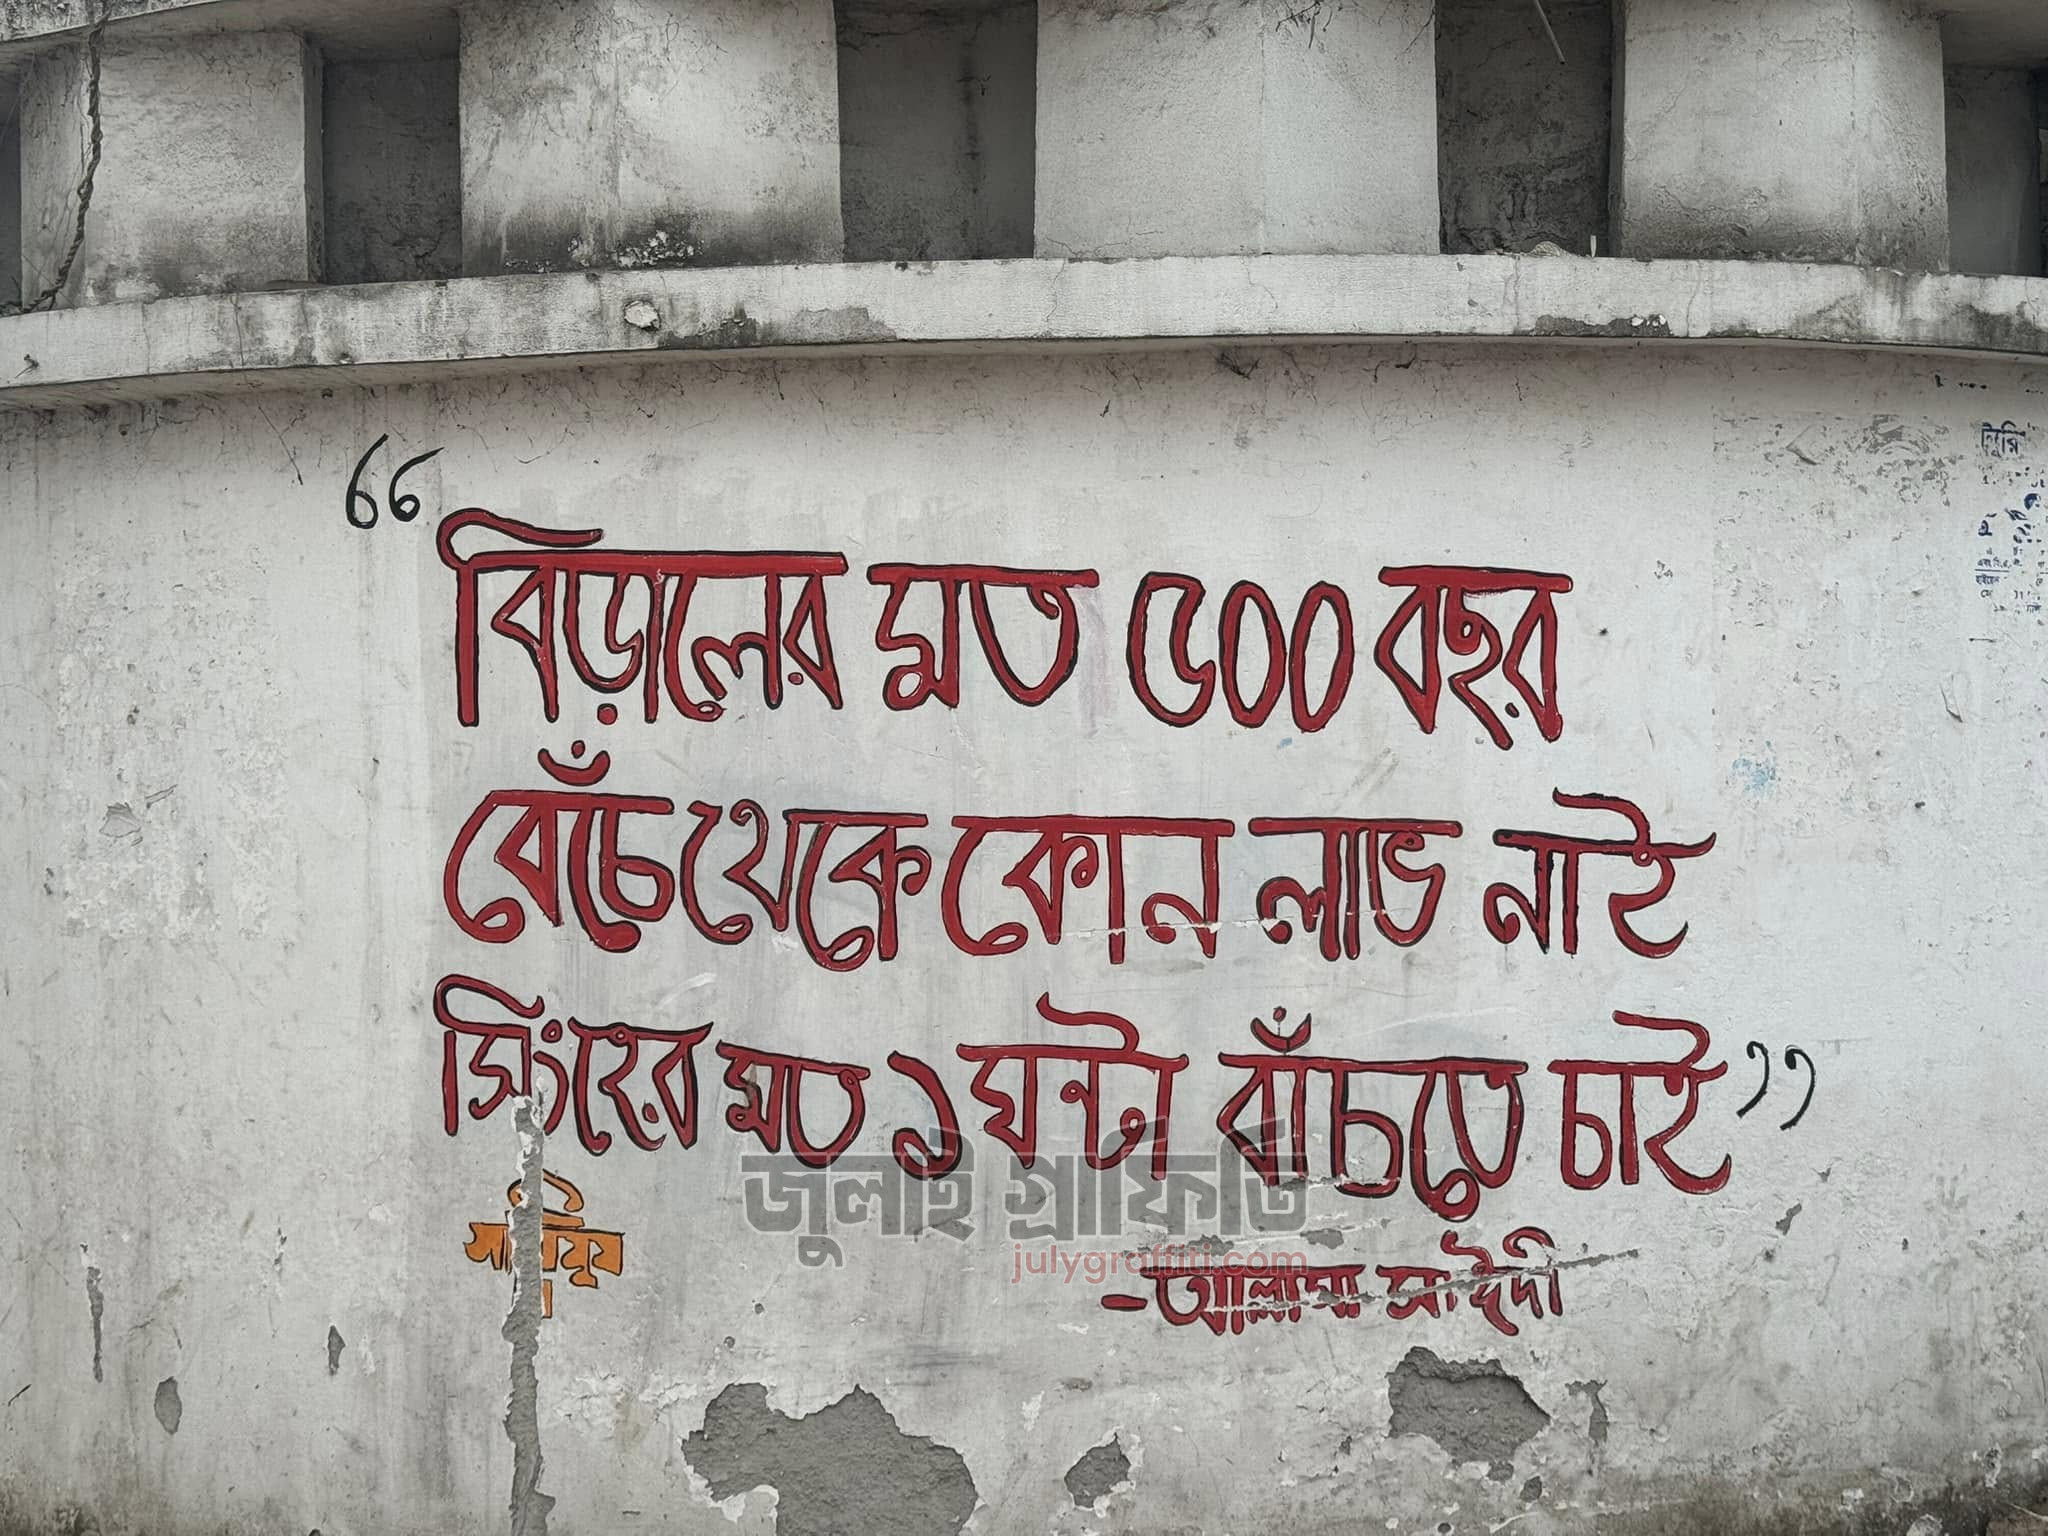 “বিড়ালের মত ৫০০ বছর
বেঁচে থেকে কোন লাভ নাই
সিংহের মত ১ ঘন্টা বাঁচতে চাই”
জুলাই গ্রাফিতি
julygraffiti.com
-আল্লামা সাঈদী